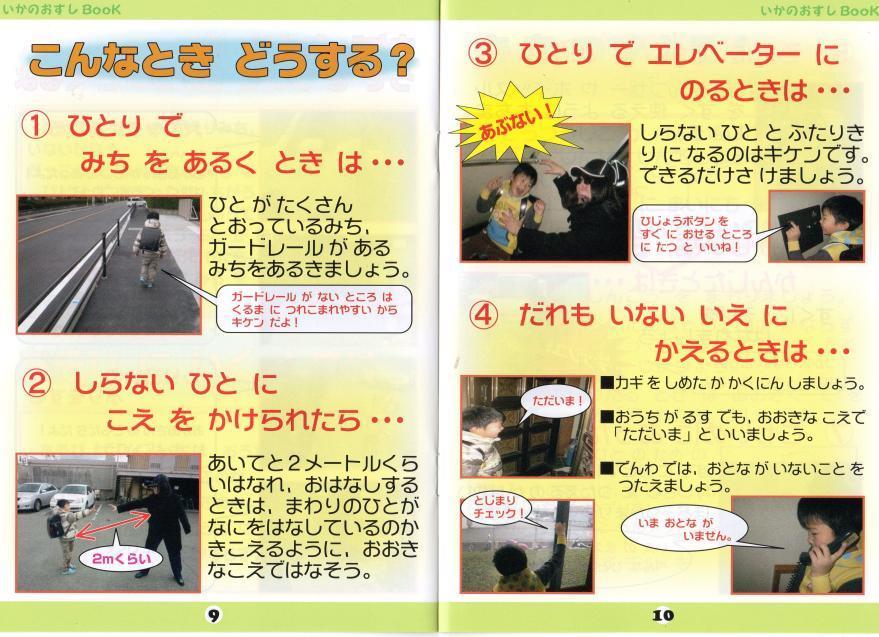 いかのおすし BooK
こんなとき どうする？
① ひとり で
みち を あるく とき は・・・
ひと が たくさん
とおっているみち，
ガードレール が ある
みちをあるきましょう。
ガードレール が ない ところ は
くるま に つれこまれやすい から
キケン だよ！
② しらない ひと に
こえ を かけられたら・・・
あいてと２メートルくら
いはなれ，おはなしする
ときは，まわりのひとが
なにをはなしているのか
きこえるように，おおき
なこえではなそう。
2mくらい
9
いかのおすし BooK
③ ひとり で エレベーター に
のるときは・・・
あぶない！
しらない ひと と ふたりき
り に なるのはキケンです。
できるだけさ けましょう。
ひじょうボタン を
すぐ に おせる ところ
に たつ と いいね！
④ だれも いない いえ に
かえるときは・・・
ただいま！
■カギ を しめた か かくにん しましょう。
■おうち が る す でも，おおきな こえで
「ただいま」と いいましょう。
■でんわ では，おとな が いないこと を
つたえましょう。
とじまり
チェック！
いま おとな が
いません。
10